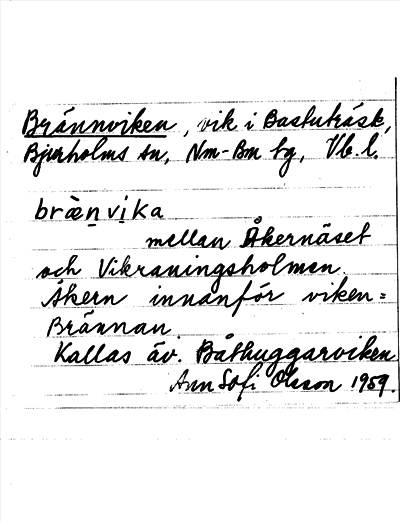 Brännviken, vik i Bastuträsk,
Bjurholms sn, Nm-Bm tg, Vb. l.
bræ̀n̲vi̲ka
mellan Åkernäset
och Vikraningsholmen.
Åkern innanför viken =
Brännan.
Kallas äv. Båthuggarviken
Ann Sofi Olsson 1959.